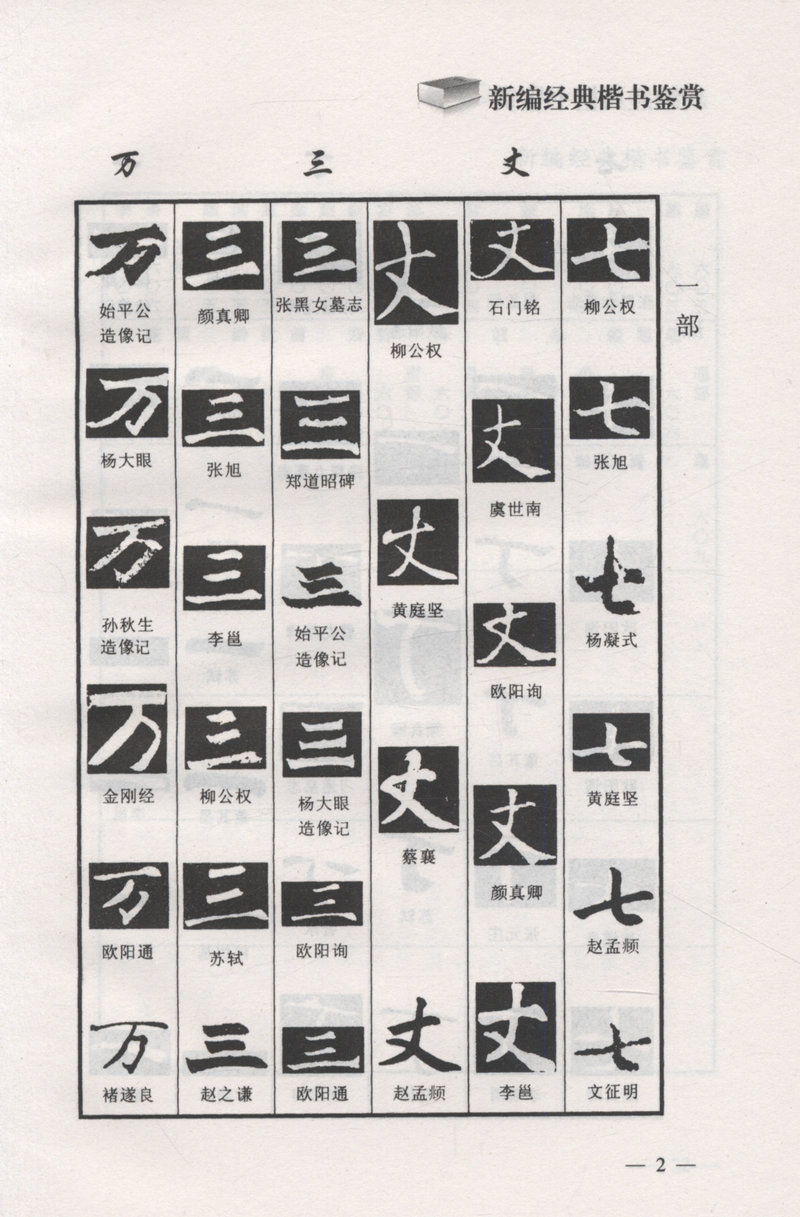 新编经典楷书鉴赏
万 三 丈
一部
七
柳公权
七
张旭
七
杨凝式
七
黄庭坚
七
赵孟𫖯
七
文征明
丈
石门铭
丈
虞世南
丈
欧阳询
丈
颜真卿
丈
李邕
丈
柳公权
丈
黄庭坚
丈
蔡襄
丈
赵孟𫖯
三
张黑女墓志
三
郑道昭碑
三
始平公
造像记
三
杨大眼
造像记
三
欧阳询
三
欧阳通
三
颜真卿
三
张旭
三
李邕
三
柳公权
三
苏轼
三
赵之谦
万
始平公
造像记
万
杨大眼
万
孙秋生
造像记
万
金刚经
万
欧阳通
万
褚遂良
— 2 —